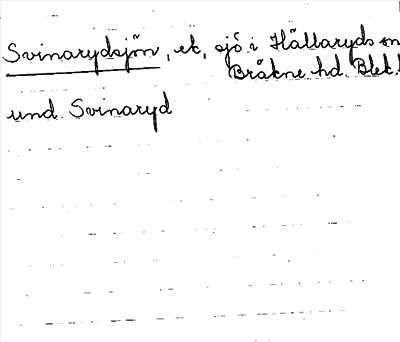 Svinarydsjön, ek, sjö i Hällaryds sn
Bräkne hd. Blek.
und. Svinaryd